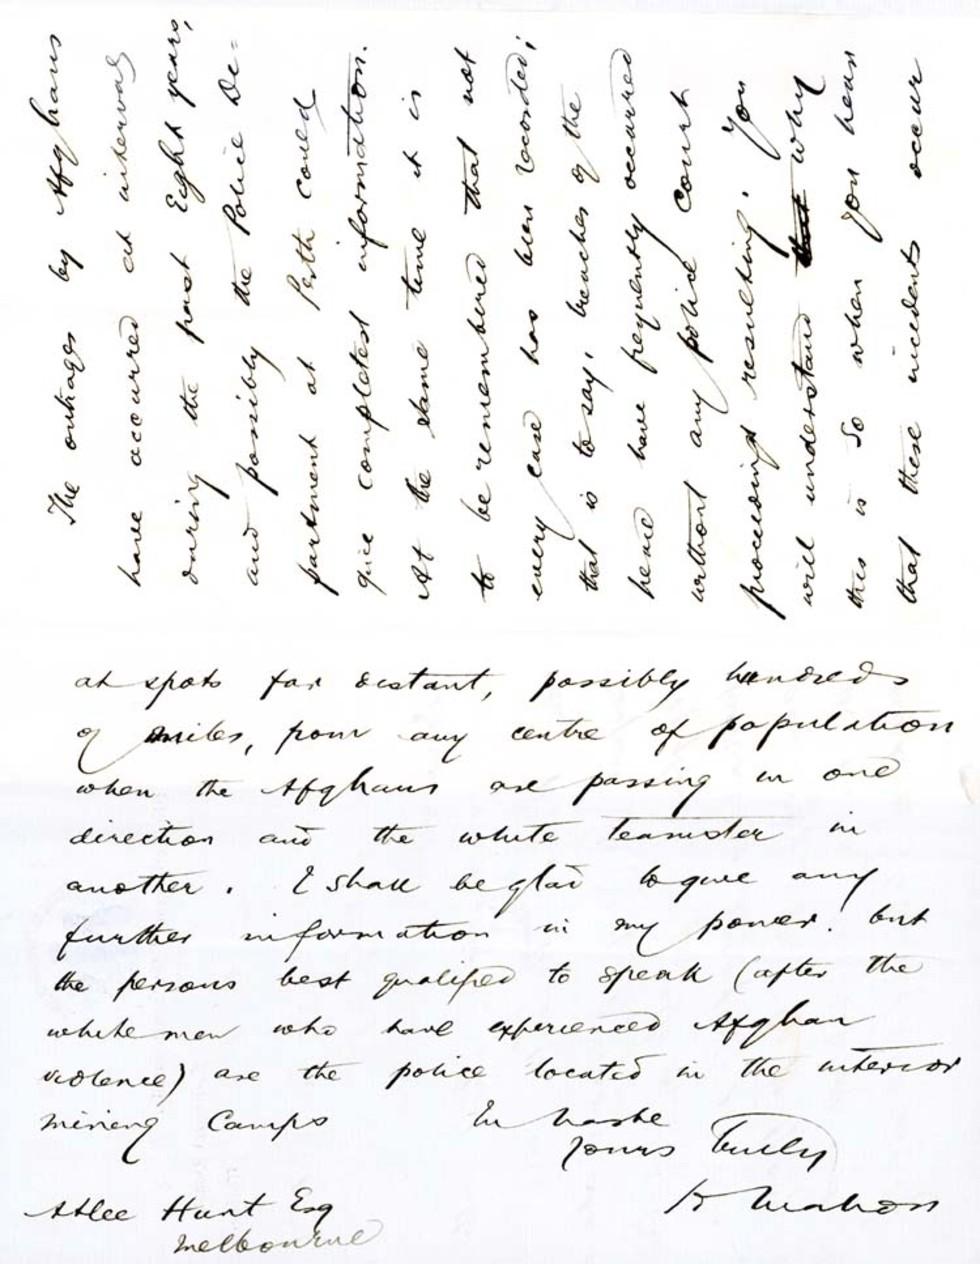 The outrages by Afghans
have occurred at intervals
during the past Eight years,
and possibly the Police De=
partment at Perth could
give completest information.
At the same time it is
to be remembered that not
every case has been recorded;
that is to say, breaches of the
peace have frequently occurred
without any police court
proceedings resulting. You
will understand why
this is so when you hear
that these incidents occur
at spots far distant, possibly hundreds
of miles, from any centre of population
when the Afghans are passing in one
direction and the white teamster in
another. I shall be glad to give any
further information in my power. but
the persons best qualified to speak (after the
white men who have experienced Afghan
violence) are the police located in the interior
mining Camps In haste
Yours Truly
H Mahon
Atlee Hunt Esq
Melbourne